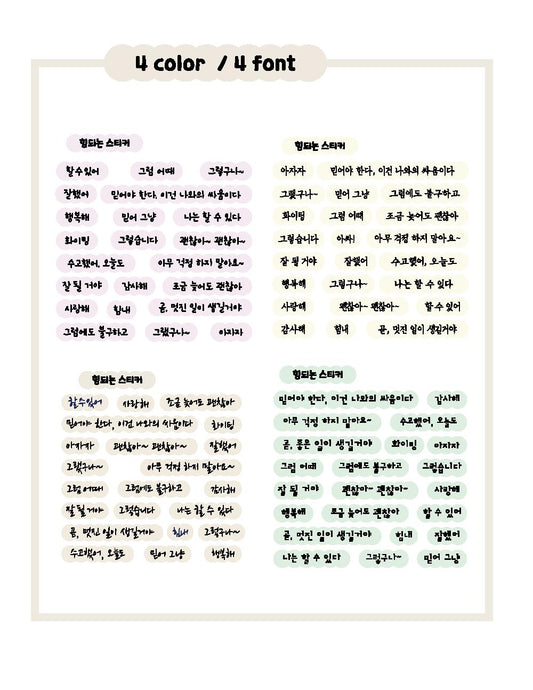 4 color / 4 font
힘되는 스티커
할수있어 그럼 어때 그렇구나~
잘했어 믿어야 한다, 이건 나와의 싸움이다
행복해 믿어 그냥 나는 할 수 있다
화이팅 그렇습니다 괜찮아~ 괜찮아~
수고했어, 오늘도 아무 걱정 하지 말아요~
잘 될 거야 감사해 조금 늦어도 괜찮아
사랑해 힘내 곧, 멋진 일이 생길거야
그럼에도 불구하고 그랬구나~ 아자자
힘되는 스티커
아자자 믿어야 한다, 이건 나와의 싸움이다
그랬구나~ 믿어 그냥 그럼에도 불구하고
화이팅 그럼 어때 조금 늦어도 괜찮아
그렇습니다 아싸! 아무 걱정 하지 말아요~
잘 될 거야 잘했어 수고했어, 오늘도
행복해 그렇구나~ 나는 할 수 있다
사랑해 괜찮아~ 괜찮아~ 할수있어
감사해 힘내 곧, 멋진 일이 생길거야
힘되는 스티커
할수있어 사랑해 조금 늦어도 괜찮아
믿어야 한다, 이건 나와의 싸움이다 화이팅
아자자 괜찮아~ 괜찮아~ 잘했어
그랬구나~ 아무 걱정 하지 말아요~
그럼 어때 그럼에도 불구하고 감사해
잘 될 거야 그렇습니다 나는 할 수 있다
곧, 멋진 일이 생길거야 힘내 그렇구나~
수고했어, 오늘도 믿어 그냥 행복해
힘되는 스티커
믿어야 한다, 이건 나와의 싸움이다 감사해
아무 걱정 하지 말아요~ 수고했어, 오늘도
곧, 좋은 일이 생길거야 화이팅 아자자
그럼 어때 그럼에도 불구하고 그렇습니다
잘 될 거야 괜찮아~ 괜찮아~ 사랑해
행복해 조금 늦어도 괜찮아 할 수 있어
곧, 멋진 일이 생길거야 힘내 잘했어
나는 할 수 있다 그렇구나~ 믿어 그냥